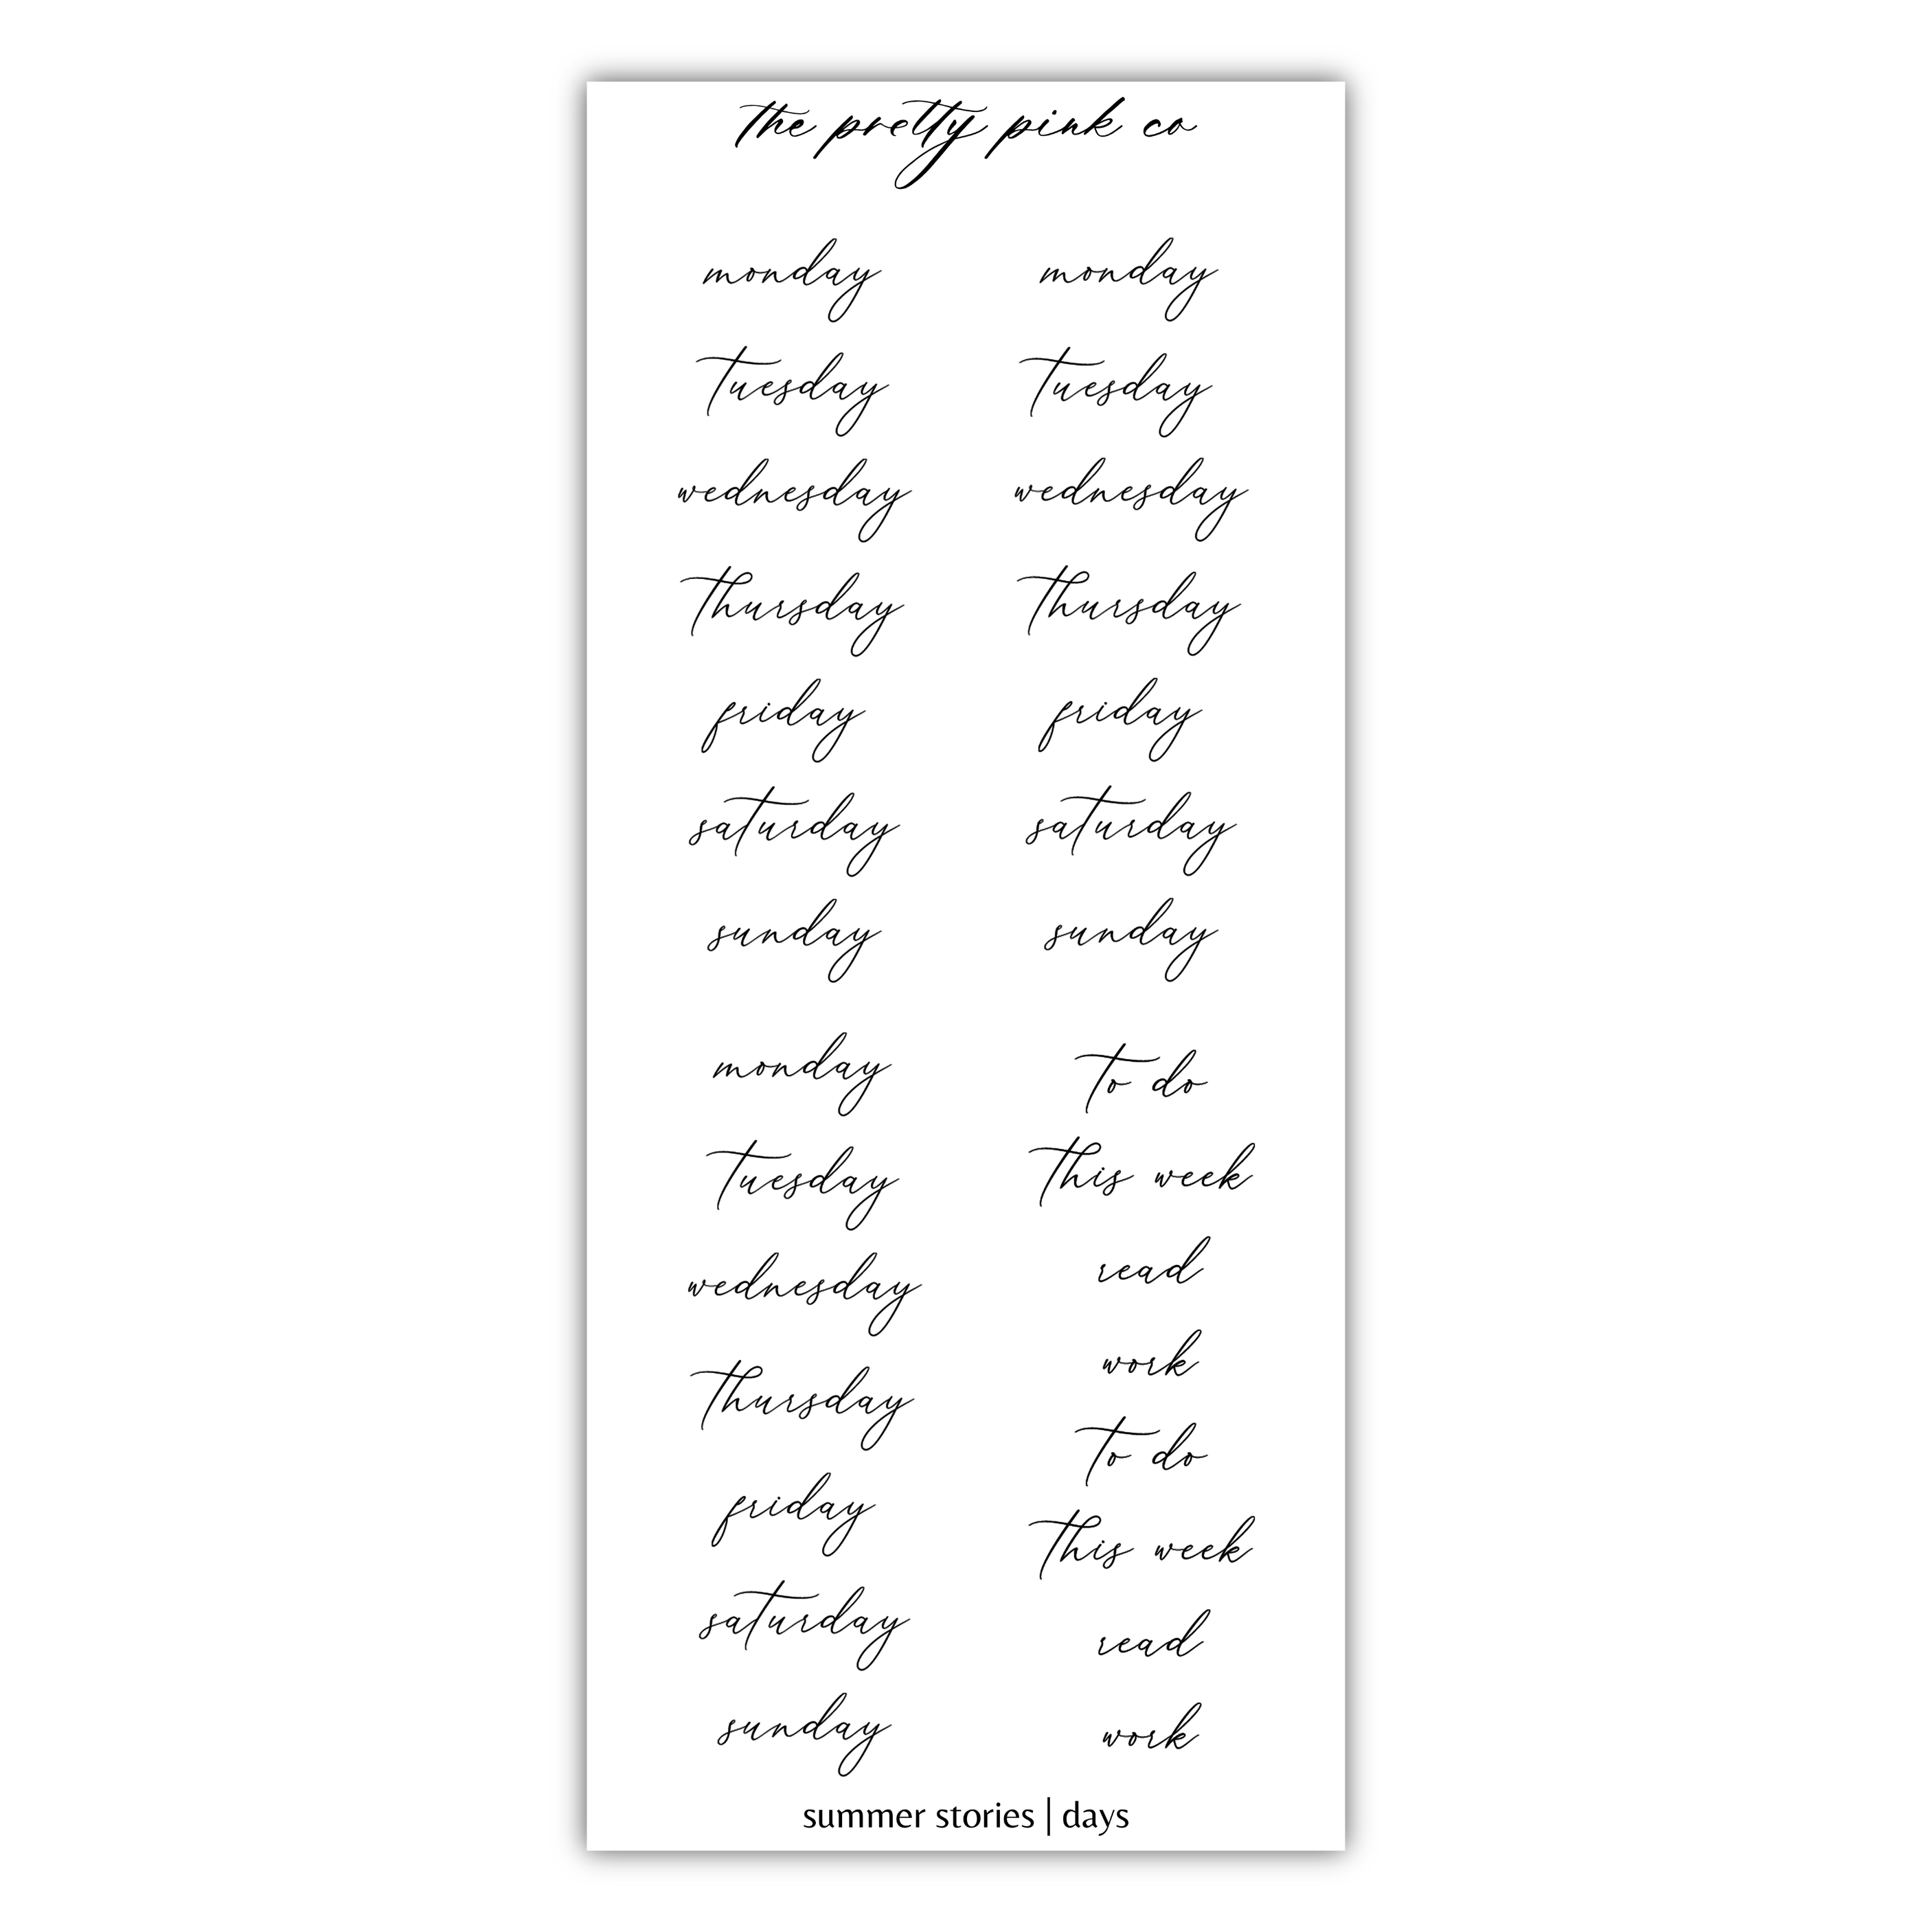 the pretty pink co
monday monday
tuesday tuesday
wednesday wednesday
thursday thursday
friday friday
saturday saturday
sunday sunday
monday to do
tuesday this week
wednesday read
thursday work
friday to do
saturday this week
sunday read
work
summer stories | days